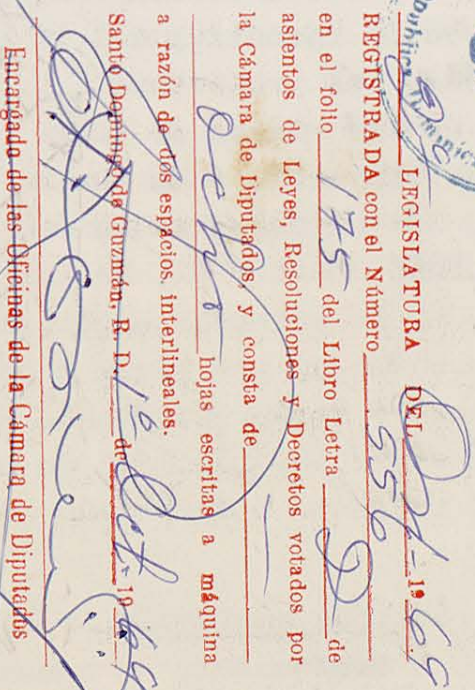 República Dominicana
2a LEGISLATURA DEL Ord- 1969
REGISTRADA con el Número 556
en el folio 175 del Libro Letra D de
asientos de Leyes, Resoluciones y Decretos votados por
la Cámara de Diputados, y consta de
ocho hojas escritas a máquina
a razón de dos espacios interlineales.
Santo Domingo de Guzmán, R. D. 1º de Oct- 1969
Encargado de las Oficinas de la Cámara de Diputados